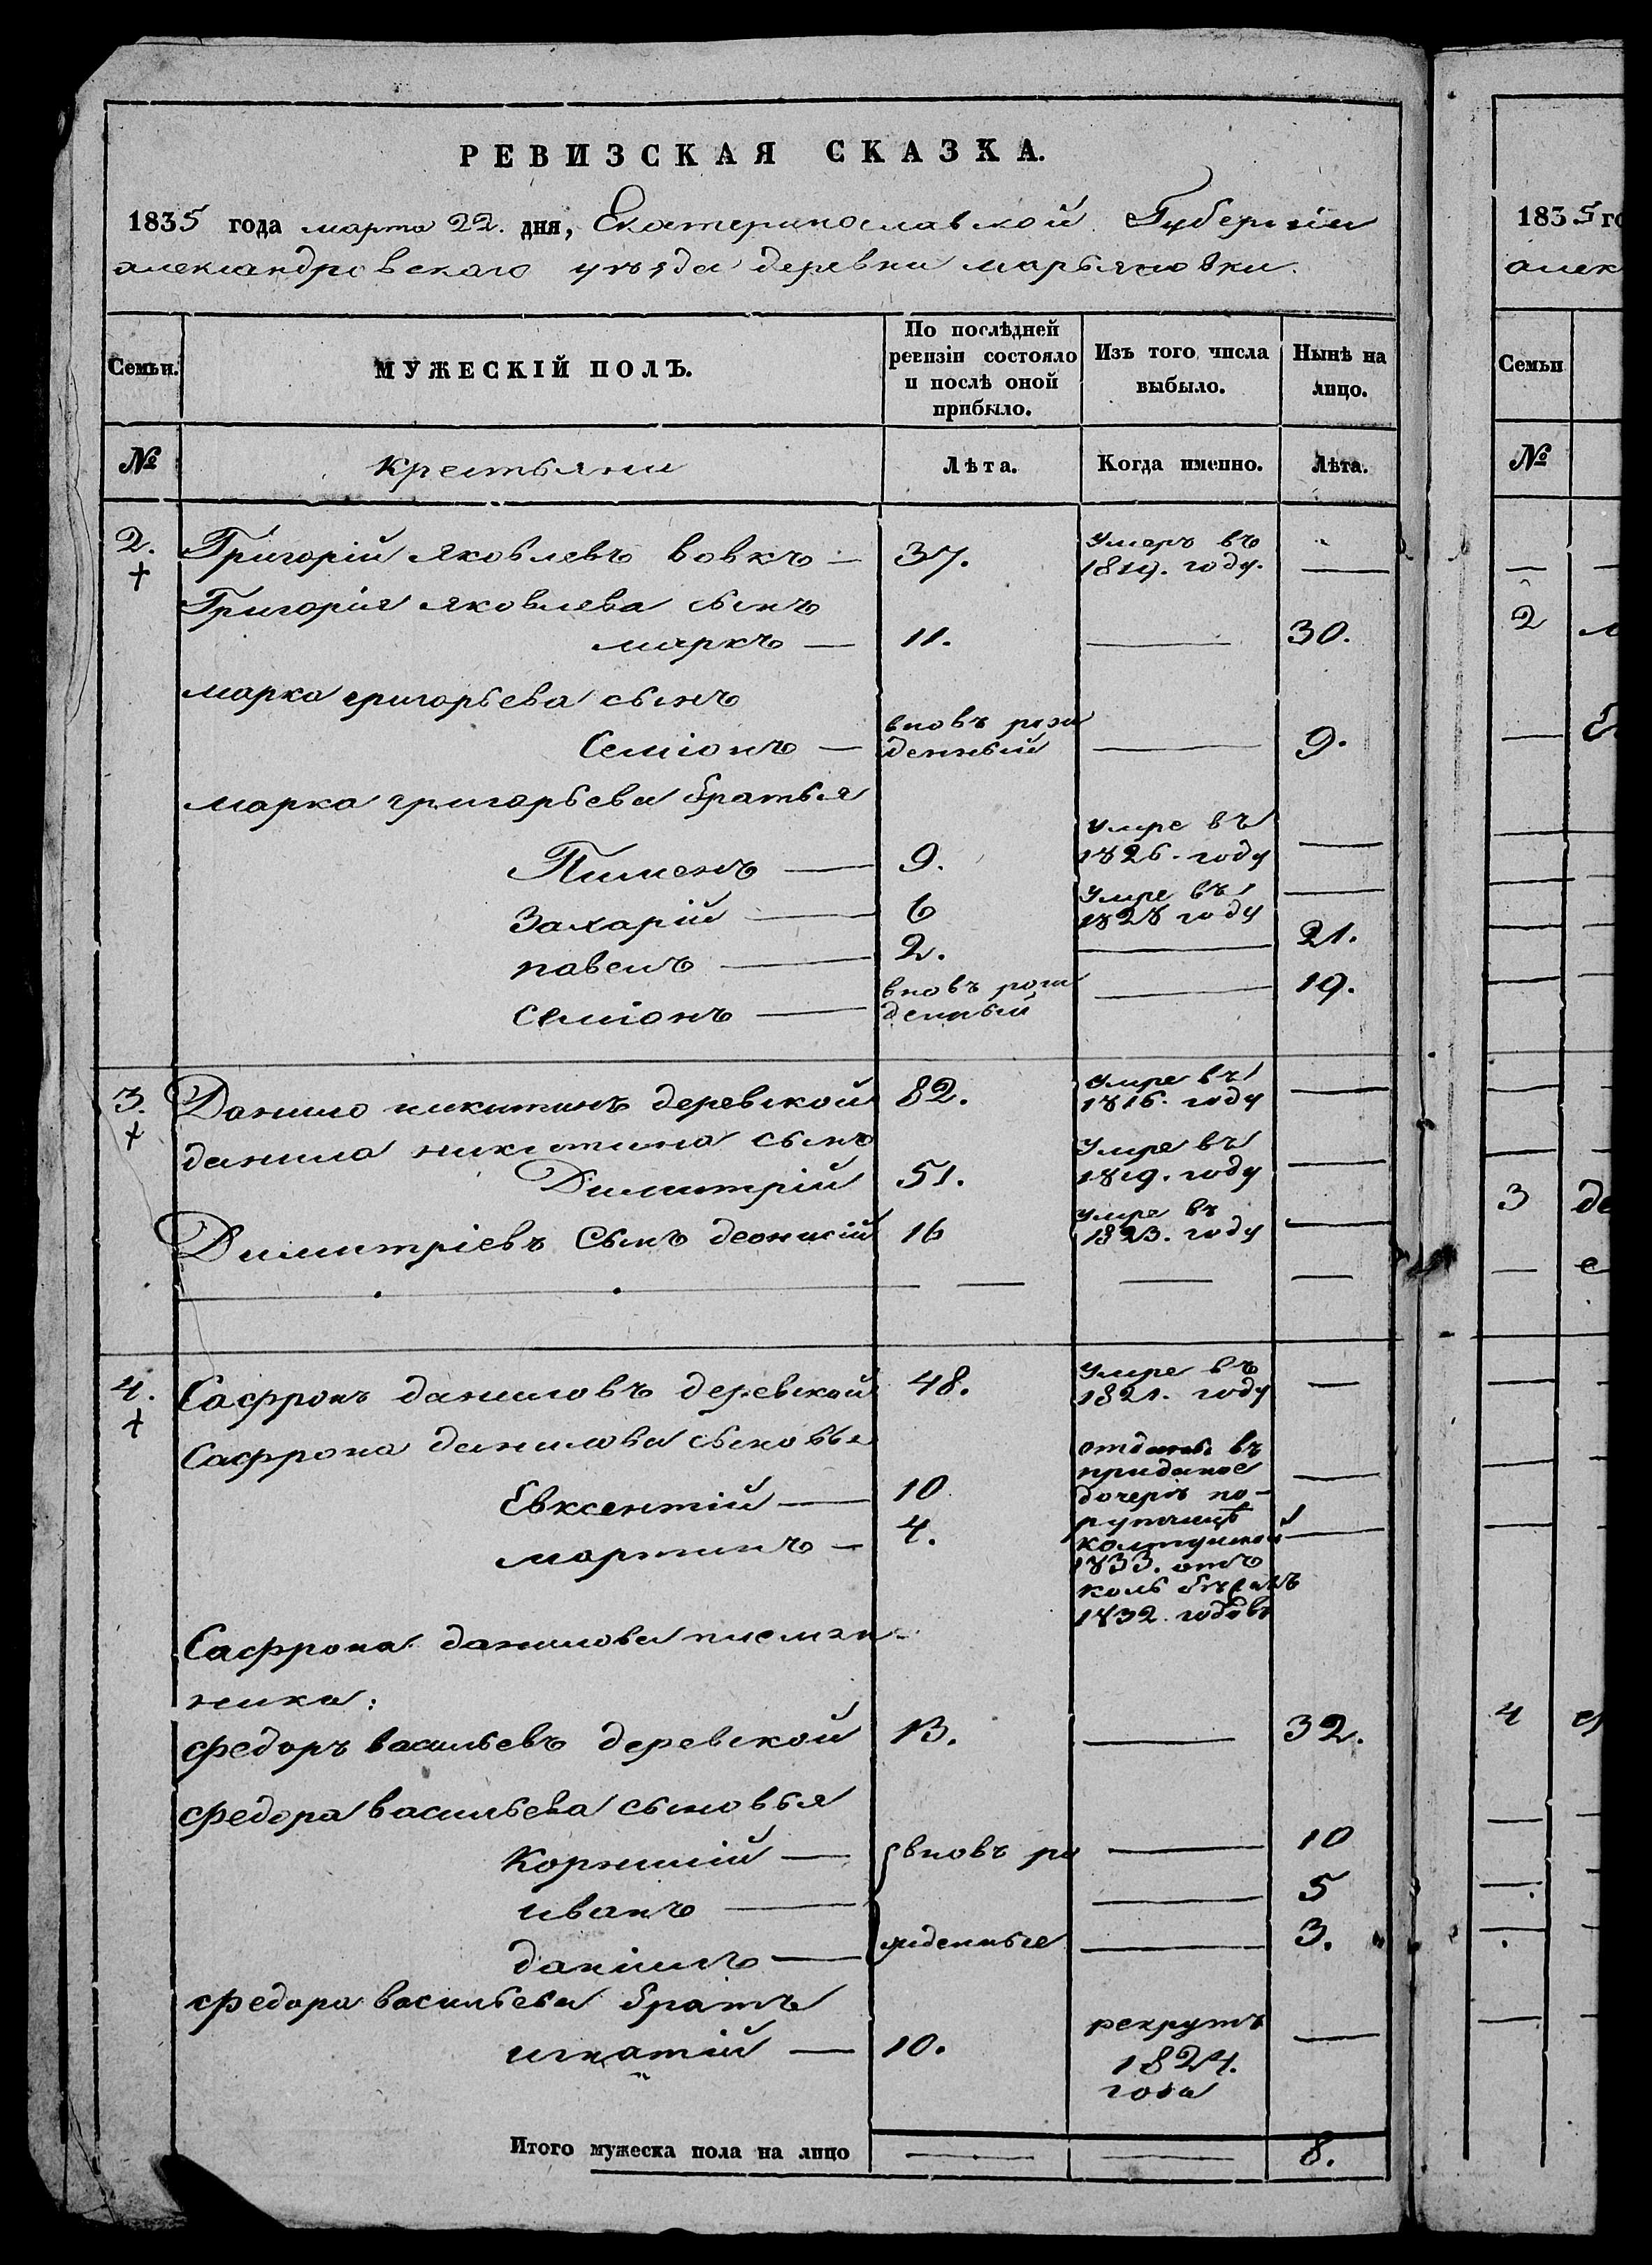 РЕВИЗСКАЯ СКАЗКА.
1835 года марта 22. дня, Екатеринославской Губерніи
александровскаго уѣзда деревни марьяновки.
Семьи. МУЖЕСКІЙ ПОЛЪ. По послѣдней ревизіи состояло и послѣ оной прибыло. Изъ того числа выбыло. Нынѣ на лицо.
№ крестьяни Лѣта. Когда именно. Лѣта.
2. Григорій яковлевъ вовкъ — 37. Умеръ въ 1819. году. —
Григорія яковлева сынъ
маркъ — 11. — 30.
марка григорьева сынъ
Семіонъ — вновъ рож денный — 9.
марка григорьева братья
Пименъ — 9. умре въ 1826. году —
Захарій — 6 Умре въ 1828 году —
павелъ — 2. — 21.
семіонъ — вновъ рож денный — 19.
3. Данило никитинъ деревской 82. умре въ 1816. году —
данила никитина сынъ
Димитрій 51. Умре въ 1819. году —
Димитріевъ Сынъ 16 умре въ 1823. году —
4. Сафронъ даниловъ деревской 48. умре въ 1821. году —
Сафрона данилова сыновья
Евксентій — 10 —
мартинъ — 4. —
отданы въ
приданое
дочери по-
1833.
1832. годовъ
Сафрона данилова племян-
ники:
федоръ васильевъ деревской 13. — 32.
федора васильева сыновья
Корнилій — вновъ ро — 10
иванъ — — 5
даніилъ — жденные — 3.
федора васильева братъ
игнатій — 10. рекрутъ 1824. года —
Итого мужеска пола на лицо — — 8.
1835 го
алек
Семьи
№
2
3 де
4